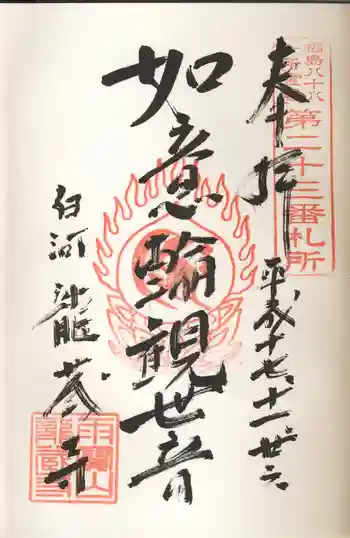 奉拝
福島八十八
第二十三番札所
平成十七、十一、廿六
如意輪観世音
白河 龍蔵寺